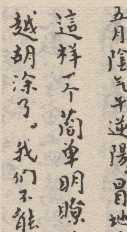 五月陰气午逆陽，冒地
這样一个簡单明瞭
越胡涂了。我们不能